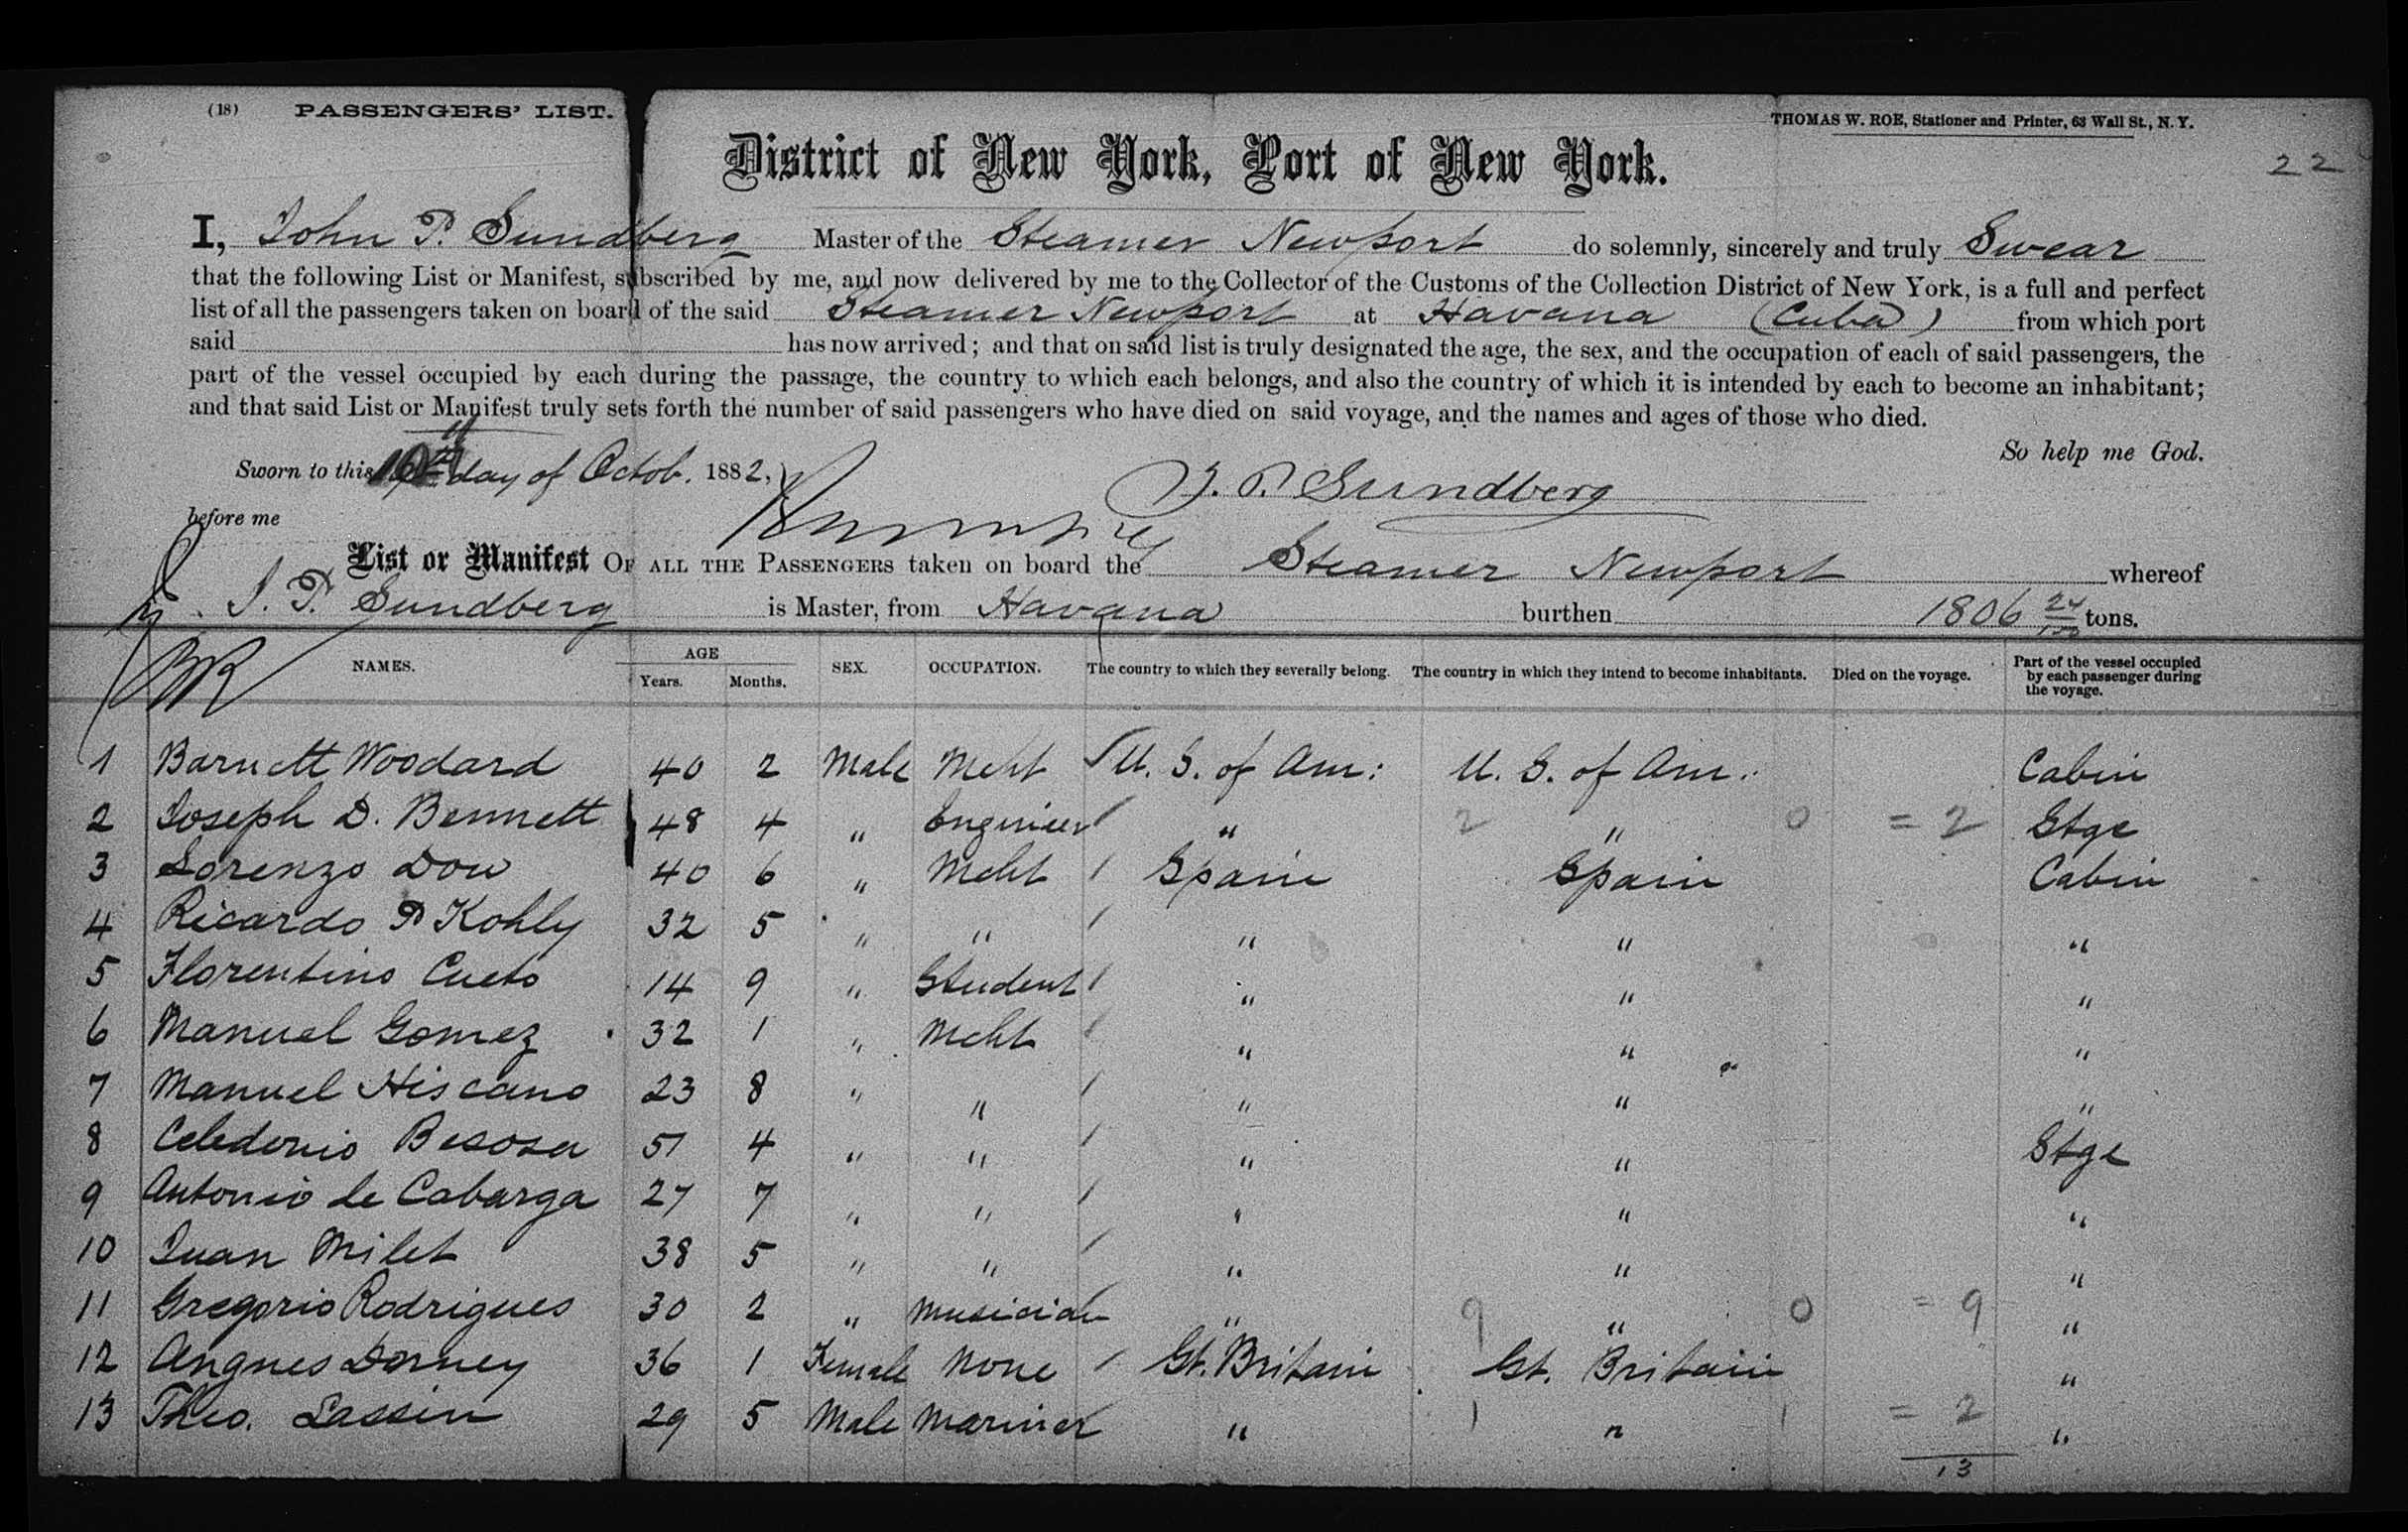 (18) PASSENGERS' LIST.
THOMAS W. ROE, Stationer and Printer, 63 Wall St., N. Y.
22
District of New York, Port of New York.
I, John P. Sundberg Master of the Steamer Newport do solemnly, sincerely and truly Swear
that the following List or Manifest, subscribed by me, and now delivered by me to the Collector of the Customs of the Collection District of New York, is a full and perfect
list of all the passengers taken on board of the said Steamer Newport at Havana (Cuba) from which port
said has now arrived; and that on said list is truly designated the age, the sex, and the occupation of each of said passengers, the
part of the vessel occupied by each during the passage, the country to which each belongs, and also the country of which it is intended by each to become an inhabitant;
and that said List or Manifest truly sets forth the number of said passengers who have died on said voyage, and the names and ages of those who died.
So help me God.
Sworn to this day of Octob. 1882,
J. P. Sundberg
before me
List or Manifest OF ALL THE PASSENGERS taken on board the Steamer Newport whereof
J. P. Sundberg is Master, from Havana burthen 1806 24/100 tons.
NAMES. AGE Years. Months. SEX. OCCUPATION. The country to which they severally belong. The country in which they intend to become inhabitants. Died on the voyage. Part of the vessel occupied by each passenger during the voyage.
1 Barnett Woodard 40 2 Male Mcht U. S. of Am: U. S. of Am: Cabin
2 Joseph D. Bennett 48 4 " Engineer " 2 " 0 = 2 Stge
3 Lorenzo Dow 40 6 " Mcht Spain Spain Cabin
4 Ricardo P Kohly 32 5 " " " " "
5 Florentino Cueto 14 9 " Student " " "
6 Manuel Gomez 32 1 " Mcht " " "
7 Manuel Hiscano 23 8 " " " " "
8 Celedonio Besosa 51 4 " " " " Stge
9 Antonio de Cabarga 27 7 " " " " "
10 Juan Milet 38 5 " " " " "
11 Gregorio Rodrigues 30 2 " Musician " 9 " 0 = 9 "
12 Angnes Dorney 36 1 Female None Gt. Britain Gt. Britain "
13 Theo. Lassin 29 5 Male Mariner " 1 " 1 = 2 "
13